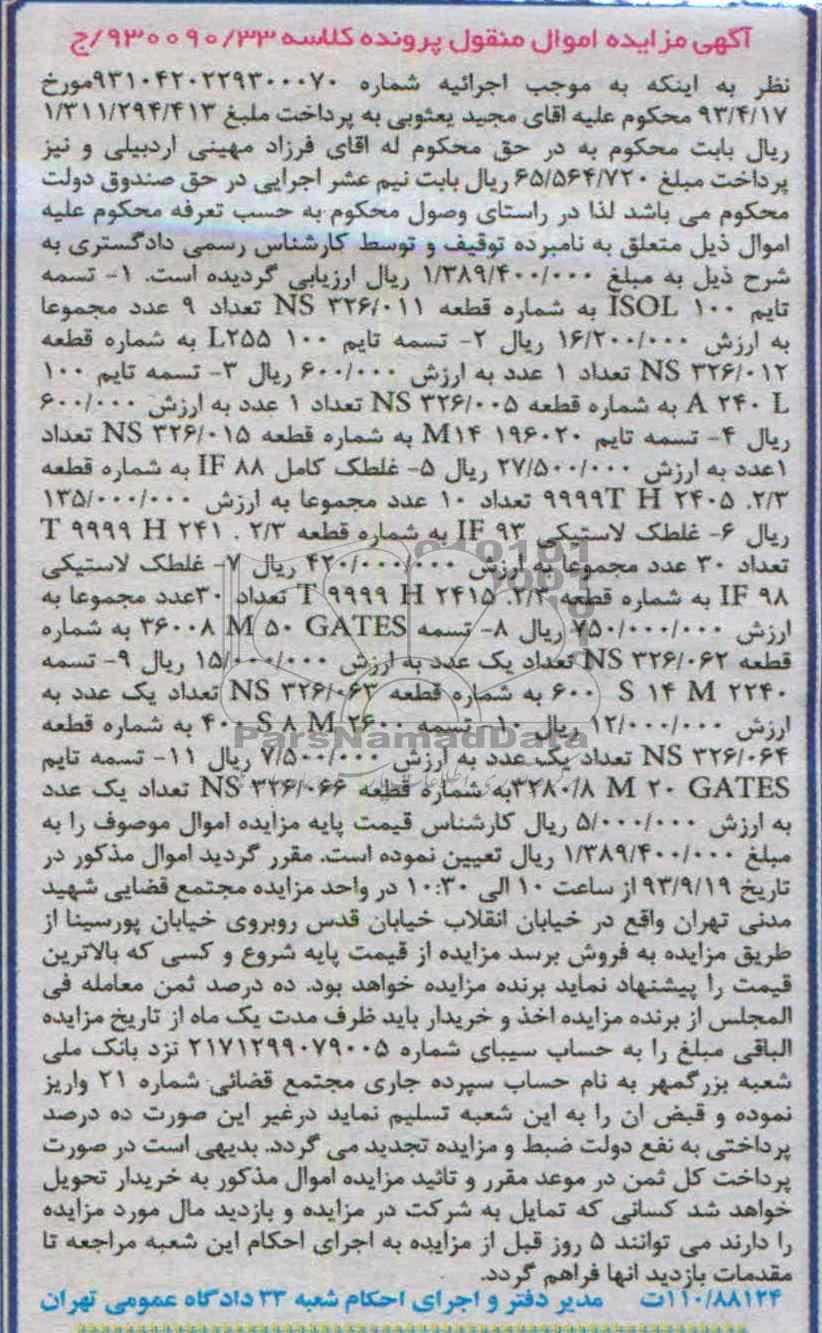 آگهی مزایده اموال منقول پرونده کلاسه ۹۳۰۰۹۰/۳۳/ج
نظر به اینکه به موجب اجرائیه شماره ۹۳۱۰۴۲۰۲۲۹۳۰۰۰۷۰مورخ
۹۳/۴/۱۷ محکوم علیه اقای مجید یعثوبی به پرداخت ملبغ ۱/۳۱۱/۲۹۴/۴۱۳
ریال بابت محکوم به در حق محکوم له اقای فرزاد مهینی اردبیلی و نیز
پرداخت مبلغ ۶۵/۵۶۴/۷۲۰ ریال بابت نیم عشر اجرایی در حق صندوق دولت
محکوم می باشد لذا در راستای وصول محکوم به حسب تعرفه محکوم علیه
اموال ذیل متعلق به نامبرده توقیف و توسط کارشناس رسمی دادگستری به
شرح ذیل به مبلغ ۱/۳۸۹/۴۰۰/۰۰۰ ریال ارزیابی گردیده است. ۱- تسمه
تایم ۱۰۰ ISOL به شماره قطعه NS ۳۲۶/۰۱۱ تعداد ۹ عدد مجموعا
به ارزش ۱۶/۲۰۰/۰۰۰ ریال ۲- تسمه تایم ۱۰۰ L۲۵۵ به شماره قطعه
NS ۳۲۶/۰۱۲ تعداد ۱ عدد به ارزش ۶۰۰/۰۰۰ ریال ۳- تسمه تایم ۱۰۰
A ۲۴۰ L به شماره قطعه NS ۳۲۶/۰۰۵ تعداد ۱ عدد به ارزش ۶۰۰/۰۰۰
ریال ۴- تسمه تایم M۱۴ ۱۹۶۰۲۰ به شماره قطعه NS ۳۲۶/۰۱۵ تعداد
۱عدد به ارزش ۲۷/۵۰۰/۰۰۰ ریال ۵- غلطک کامل IF ۸۸ به شماره قطعه
۲/۳. ۹۹۹۹T H ۲۴۰۵ تعداد ۱۰ عدد مجموعا به ارزش ۱۳۵/۰۰۰/۰۰۰
ریال ۶- غلطک لاستیکی IF ۹۳ به شماره قطعه ۲/۳ . T ۹۹۹۹ H ۲۴۱
تعداد ۳۰ عدد مجموعا به ارزش ۴۲۰/۰۰۰/۰۰۰ ریال ۷- غلطک لاستیکی
IF ۹۸ به شماره قطعه ۲/۳. T ۹۹۹۹ H ۲۴۱۵ تعداد ۳۰عدد مجموعا به
ارزش ۷۵۰/۰۰۰/۰۰۰ ریال ۸- تسمه ۳۶۰۰۸ M ۵۰ GATES به شماره
قطعه NS ۳۲۶/۰۶۲ تعداد یک عدد به ارزش ۱۵/۰۰۰/۰۰۰ ریال ۹- تسمه
۶۰۰ S ۱۴ M ۲۲۴۰ به شماره قطعه NS ۳۲۶/۰۶۳ تعداد یک عدد به
ارزش ۱۲/۰۰۰/۰۰۰ ریال ۱۰- تسمه ۴۰۰ S ۸ M ۲۶۰۰ به شماره قطعه
NS ۳۲۶/۰۶۴ تعداد یک عدد به ارزش ۷/۵۰۰/۰۰۰ ریال ۱۱- تسمه تایم
۳۲۸۰/۸ M ۲۰ GATESبه شماره قطعه NS ۳۲۶/۰۶۶ تعداد یک عدد
به ارزش ۵/۰۰۰/۰۰۰ ریال کارشناس قیمت پایه مزایده اموال موصوف را به
مبلغ ۱/۳۸۹/۴۰۰/۰۰۰ ریال تعیین نموده است. مقرر گردید اموال مذکور در
تاریخ ۹۳/۹/۱۹ از ساعت ۱۰ الی ۱۰:۳۰ در واحد مزایده مجتمع قضایی شهید
مدنی تهران واقع در خیابان انقلاب خیابان قدس روبروی خیابان پورسینا از
طریق مزایده به فروش برسد مزایده از قیمت پایه شروع و کسی که بالاترین
قیمت را پیشنهاد نماید برنده مزایده خواهد بود. ده درصد ثمن معامله فی
المجلس از برنده مزایده اخذ و خریدار باید ظرف مدت یک ماه از تاریخ مزایده
الباقی مبلغ را به حساب سیبای شماره ۲۱۷۱۲۹۹۰۷۹۰۰۵ نزد بانک ملی
شعبه بزرگمهر به نام حساب سپرده جاری مجتمع قضائی شماره ۲۱ واریز
نموده و قبض ان را به این شعبه تسلیم نماید درغیر این صورت ده درصد
پرداختی به نفع دولت ضبط و مزایده تجدید می گردد. بدیهی است در صورت
پرداخت کل ثمن در موعد مقرر و تائید مزایده اموال مذکور به خریدار تحویل
خواهد شد کسانی که تمایل به شرکت در مزایده و بازدید مال مورد مزایده
را دارند می توانند ۵ روز قبل از مزایده به اجرای احکام این شعبه مراجعه تا
مقدمات بازدید انها فراهم گردد.
۱۱۰/۸۸۱۲۴ت مدیر دفتر و اجرای احکام شعبه ۳۳ دادگاه عمومی تهران
ParsNamadData